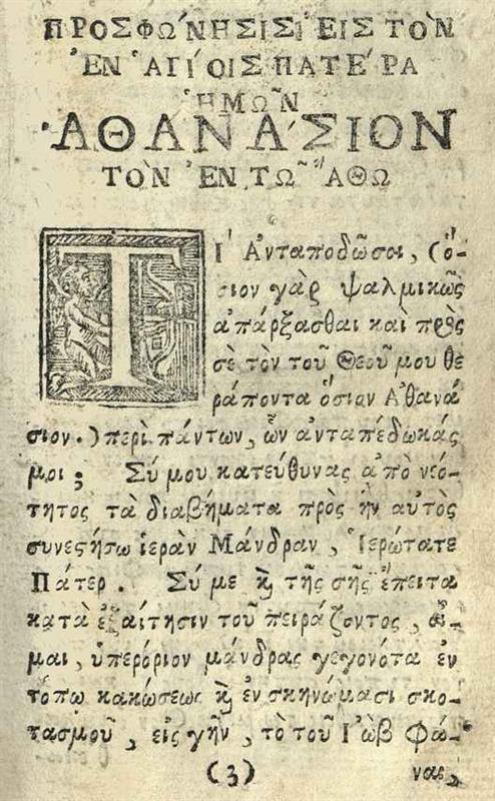 ΠΡΟΣΦΩΝΗΣΙΣ ἘΙΣ ΤῸΝ
ἘΝ ἉΓΊΟΙΣ ΠΑΤΈΡΑ
ἩΜΩ͂Ν
ἈΘΑΝΆΣΙΟΝ
ΤῸΝ ἘΝ ΤΩ͂ ἌΘΩ
Τ Ι΄ Ἀνταποδῶσαι, (ὅ-
σιον γὰρ ψαλμικῶς
ἀπάρξασθαι καὶ πρὸς
σὲ τὸν τοῦ Θεοῦ μου θε
ράποντα ὅσιον Ἀθανά
σιον.) περὶ πάντων, ὧν ἀνταπέδωκάς
μοι; Σύ μου κατεύθυνας ἀπὸ νεό-
τητος τὰ διαβήματα πρὸς ἣν αὐτὸς
συνεστήσω ἱερὰν Μάνδραν, Ἱερώτατε
Πάτερ. Σύ με ϗ τῆς σῆς ἔπειτα
κατὰ ἐξαίτησιν τοῦ πειράζοντος, οἶ-
μαι, ὑπερόριον μάνδρας γεγονότα ἐν
τόπῳ κακώσεως ϗ ἐν σκηνώμασι σκο-
τασμοῦ, εἰς γῆν, τὸ τοῦ Ἰὼβ φώ-
(3) ναι,